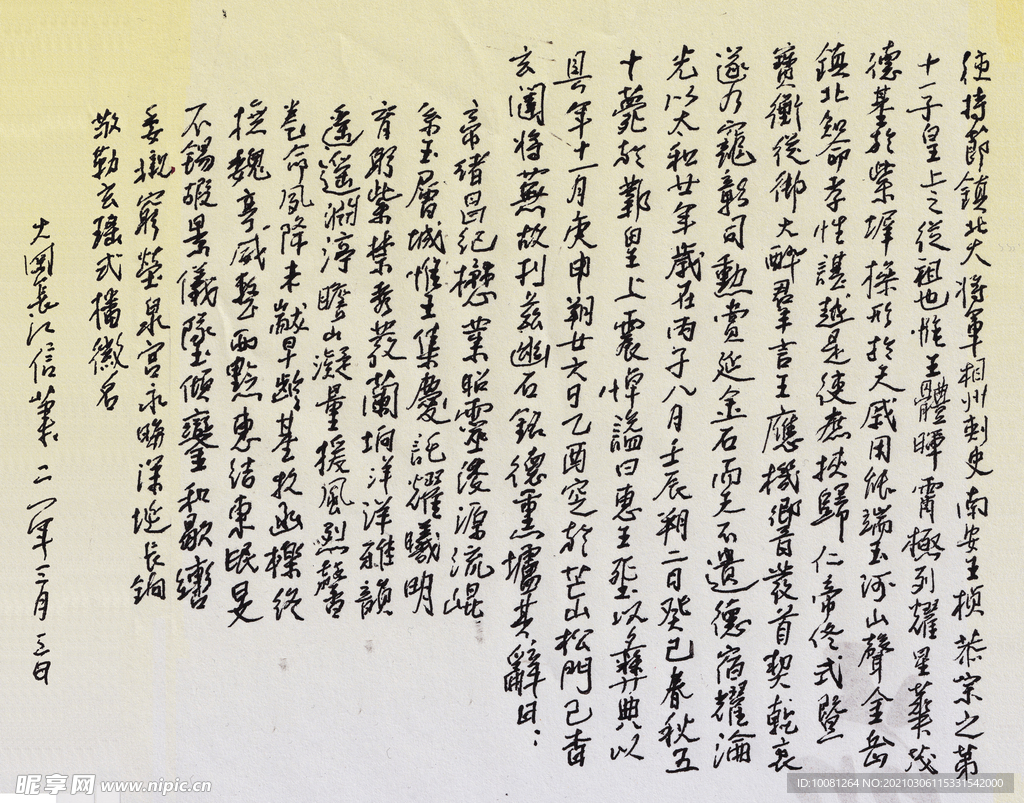 使持節鎮北大將軍相州刺史南安王楨恭宗之第
十一子皇上之從祖也惟王體暉霄極列耀星華茂
德基於紫墀操形於天戚用能端玉河山聲金岳
鎮北知命孝性謀越是使庶挾歸仁帝佟式暨
寶衡從御大醉群言王應機響首契乾衷
遂乃寵彰司勳賞延金石而天不遺德宿耀淪
光以太和廿年歲在丙子八月壬辰朔二日癸巳春秋五
十薨於鄴皇上震悼謚曰惠王葬以彝典以
其年十一月庚申朔廿六日乙酉窆於芒山松門已杳
玄闥將蕪故刊茲幽石銘德熏壚其辭曰：
帝緒昌紀懋業昭靈浚源流崐
系玉層城惟王集慶託耀曦明
育躬紫禁秀發蘭坰洋洋雅韻
遙遙淵渟瞻山凝量援風烈馨
卷命夙降未黻早齡基牧幽櫟終
撫魏亭威整西黔惠結東氓旻
不錫嘏景儀墜傾鑾和歇轡
委櫬窮塋泉宮永晦深埏長銅
敬勒玄瑤式播徽名
大國長江信筆二一年三月三日
昵享网 www.nipic.cn
ID:10081264 NO:20210306115331542000